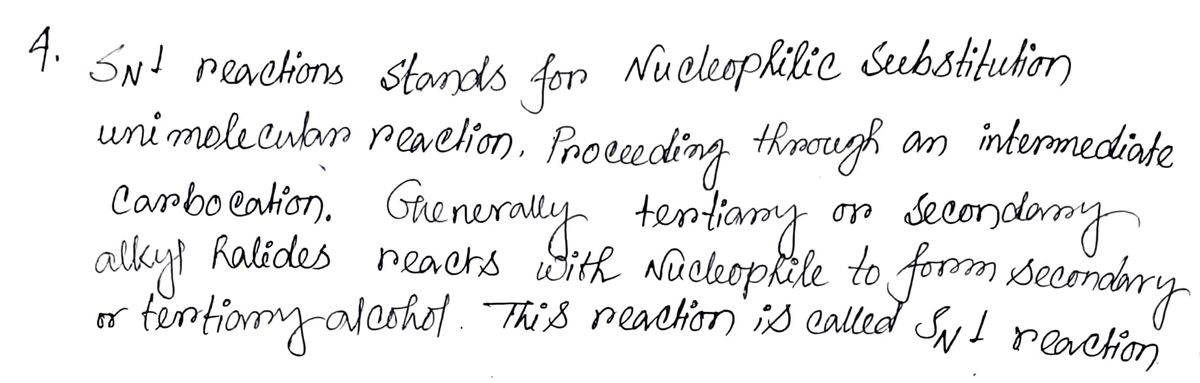 4. SN1 reactions stands for Nucleophilic Substitution
unimolecular reaction. Proceeding through an intermediate
Carbocation. Generally tertiary or secondary
alkyl halides reacts with Nucleophile to form secondary
or tertiary alcohol. This reaction is called SN1 reaction